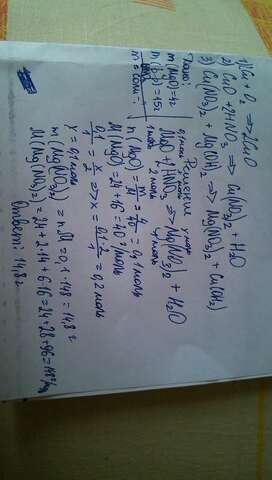 1) Cu + O₂ ⇒ 2CuO
2) CuO + 2HNO₃ ⇒ Cu(NO₃)₂ + H₂O
3) Cu(NO₃)₂ + Mg(OH)₂ ⇒ Mg(NO₃)₂ + Cu(OH)₂
Дано: Решение
m(MgO) = 4г 0,1моль x моль y моль
MgO + 2HNO₃ ⇒ Mg(NO₃)₂ + H₂O
1 моль 2 моль 1 моль
m соли - ?
n(MgO) = m/M = 4/40 = 0,1 моль
M(MgO) = 24 + 16 = 40 г/моль
0,1/1 = x/2 ⇒ x = 0,1·2/1 = 0,2 моль
y = 0,1 моль
m(Mg(NO₃)₂) = nM = 0,1 · 148 = 14,8 г
M(Mg(NO₃)₂) = 24 + 2·14 + 6·16 = 24 + 28 + 96 = 148 г/моль
Ответ: 14,8 г